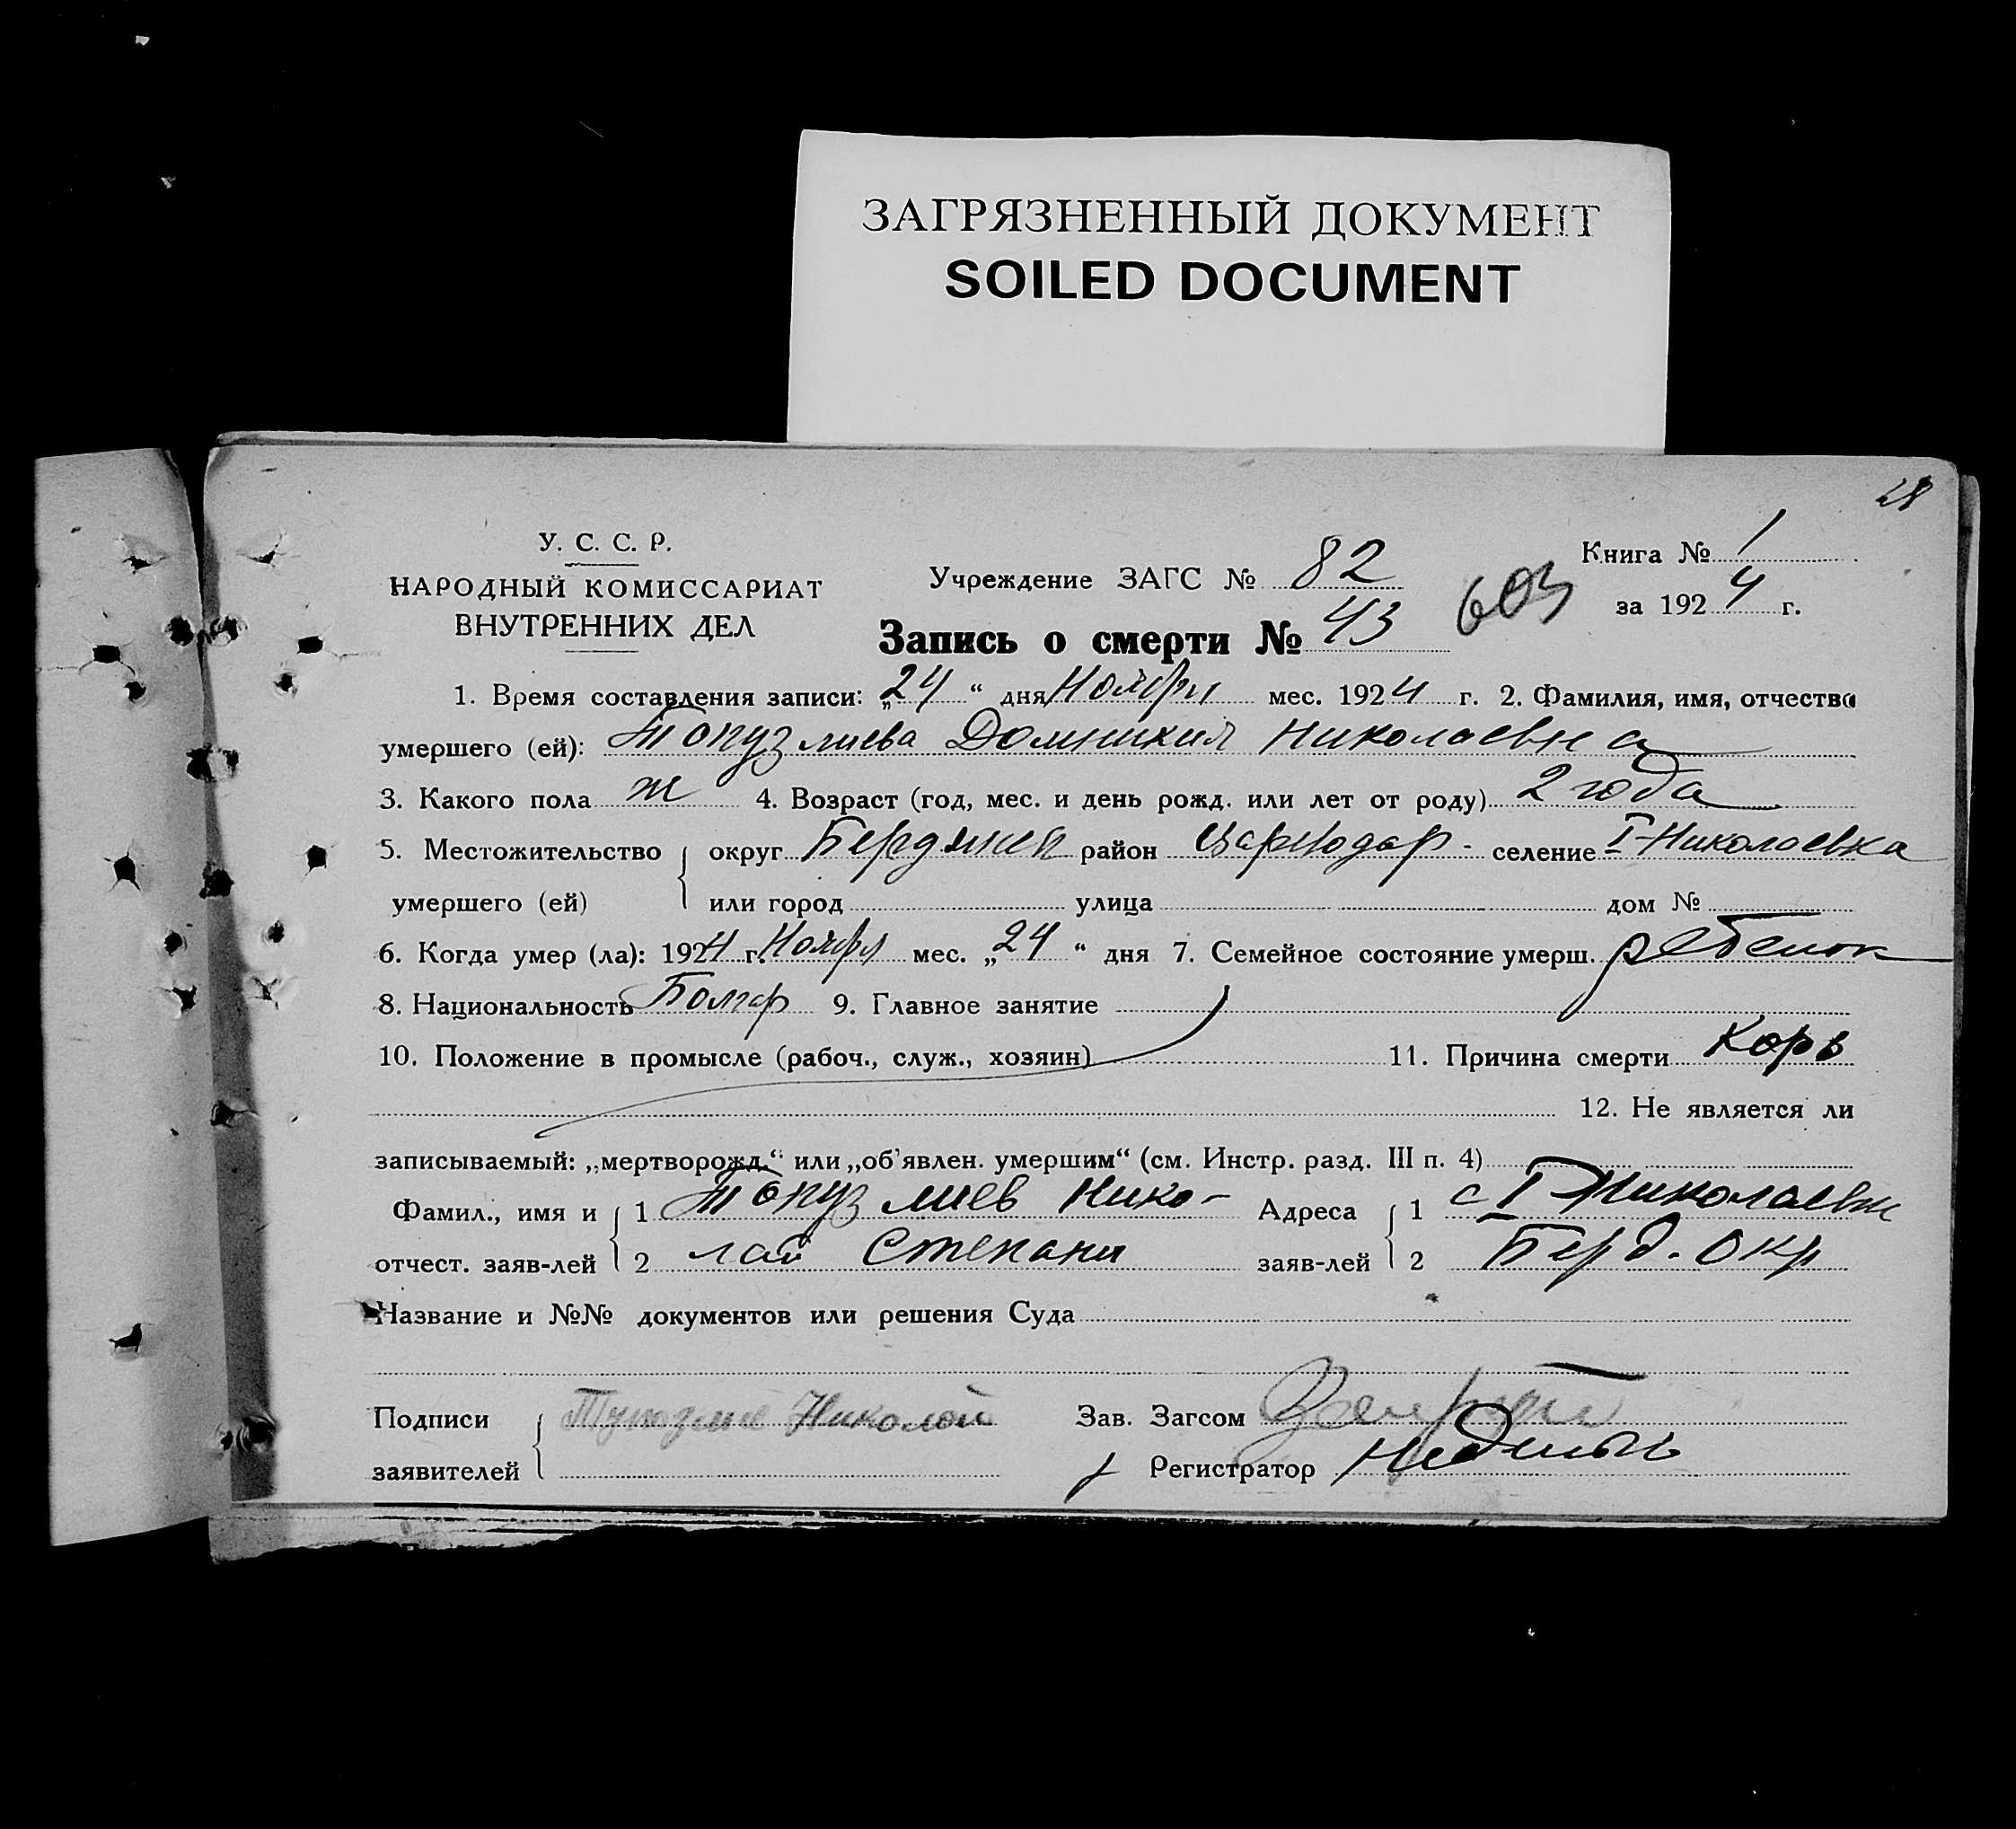 ЗАГРЯЗНЕННЫЙ ДОКУМЕНТ
SOILED DOCUMENT
28
У. С. С. Р.
НАРОДНЫЙ КОМИССАРИАТ
ВНУТРЕННИХ ДЕЛ
Учреждение ЗАГС № 82
Запись о смерти № 43
603
Книга № 1
за 1924 г.
1. Время составления записи: „24“ дня Ноября мес. 1924 г. 2. Фамилия, имя, отчество
умершего (ей): Топузлиева Домникия Николаевна
3. Какого пола ж 4. Возраст (год, мес. и день рожд. или лет от роду) 2 года
5. Местожительство округ Бердянск район Царводар- селение I-Николаевка
умершего (ей) или город улица дом №
6. Когда умер (ла): 1924 г. Ноября мес. „24“ дня 7. Семейное состояние умерш. ребенок
8. Национальность Болгар 9. Главное занятие
10. Положение в промысле (рабоч., служ., хозяин) 11. Причина смерти Корь
12. Не является ли
записываемый: „мертворожд.“ или „об'явлен. умершим“ (см. Инстр. разд. III п. 4)
Фамил., имя и 1 Топузлиев Нико- Адреса 1 с I Николаевки
отчест. заяв-лей 2 лай Степани заяв-лей 2 Берд. окр
Название и №№ документов или решения Суда
Подписи Николай Зав. Загсом
заявителей Регистратор